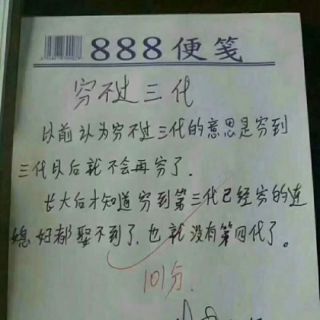 888便笺
穷不过三代
以前认为穷不过三代的意思是穷到
三代以后就不会再穷了.
长大后才知道穷到第三代已经穷的连
媳妇都娶不到了.也就没有第四代了。
101分.